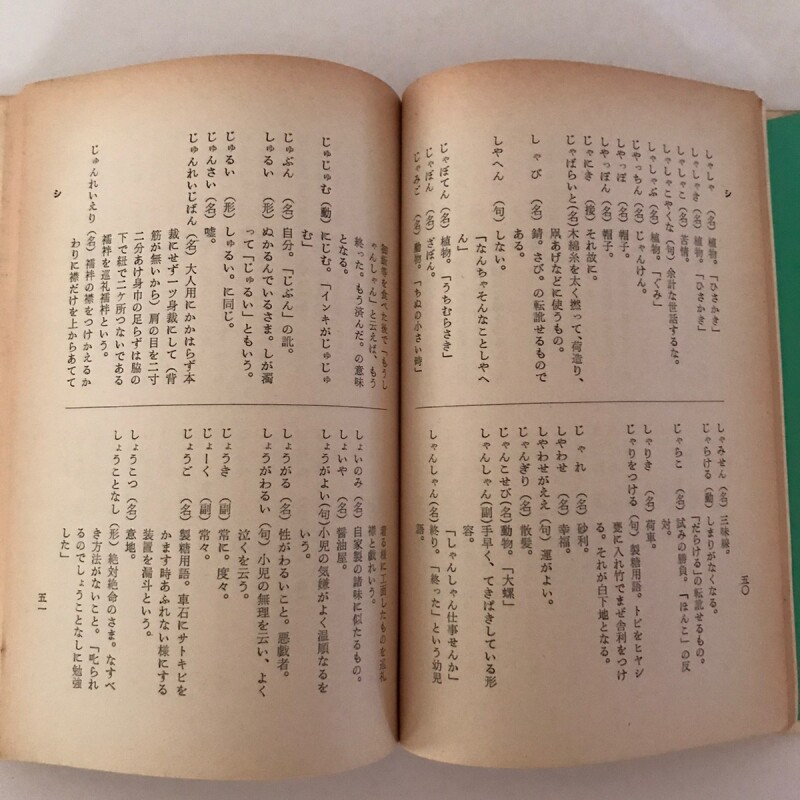 シ
しゃしゃ (名) 植物。「ひさかき」
しゃしゃき (名) 植物。「ひさかき」
しゃしゃこ (名) 苦情。
しゃしゃこやくな (句) 余計な世話するな。
しゃしゃぶ (名) 植物。「ぐみ」
じゃっちん (名) じゃんけん。
しゃっぽ (名) 帽子。
しゃっぽん (名) 帽子。
じゃにき (接) それ故に。
じゃばらいと (名) 木綿糸を太く撚って、荷造り、
凧あげなどに使うもの。
しゃび (名) 錆。さび。の転訛せるもので
ある。
しやへん (句) しない。
「なんちゃそんなことしやへ
ん」
じゃぼてん (名) 植物。「うちむらさき」
じゃぼん (名) ざぼん。
じゃみど (名) 動物。
しゃみせん (名) 三味線。
じゃらける (動) しまりがなくなる。
「だらける」の転訛せるもの。
じゃらこ (名) 試みの勝負。「ほんこ」の反
対。
しゃりき (名) 荷車。
じゃりをつける (句) 製糖用語。トビをヒヤシ
甕に入れ竹でまぜ舎利をつけ
る。それが白下地となる。
じゃれ (名) 砂利。
しやわせ (名) 幸福。
しやわせがええ (句) 運がよい。
じゃんぎり (名) 散髪。
じゃんこせび (名) 動物。「大螺」
しゃんしゃん (副) 手早く、てきぱきしている形
容。
「しゃんしゃん仕事せんか」
しゃんしゃん (名) 終り。「終った」という幼児
語。
五〇
御飯等を食べた後で「もうし
ゃんしゃん」と云えば、もう
終った。もう済んだ。の意味
となる。
じゅじゅむ (動) にじむ。「インキがじゅじゅ
む」
じゅぶん (名) 自分。「じぶん」の訛。
しゅるい (形) ぬかるんでいるさま。しが濁
って「じゅるい」ともいう。
じゅるい (形) しゅるい。に同じ。
じゅんさい (名) 嘘。
じゅんれいじばん (名) 大人用にかかはらず本
裁にせず一ツ身裁にして (背
筋が無いから) 肩の目を二寸
二分あけ身巾の足らずは脇の
下で紐で二ケ所つないである
襦袢を巡礼襦袢という。
じゅんれいえり (名) 襦袢の襟をつけかえるか
わりに襟だけを上からあてて
シ
しょいのみ (名) 自家製の諸味に似たるもの。
しょいや (名) 醤油屋。
しょうがよい (句) 小児の気嫌がよく温順なるを
いう。
しょうがる (名) 性がわるいこと。悪戯者。
しょうがわるい (句) 小児の無理を云い、よく
泣くを云う。
じょうき (副) 常に。度々。
じょーく (副) 常々。
じょうご (名) 製糖用語。車石にサトキビを
かます時あふれない様にする
装置を漏斗という。
しょうこつ (名) 意地。
しょうことなし (形) 絶対絶命のさま。なすべ
き方法がないこと。「叱られ
るのでしょうことなしに勉強
した」
五一